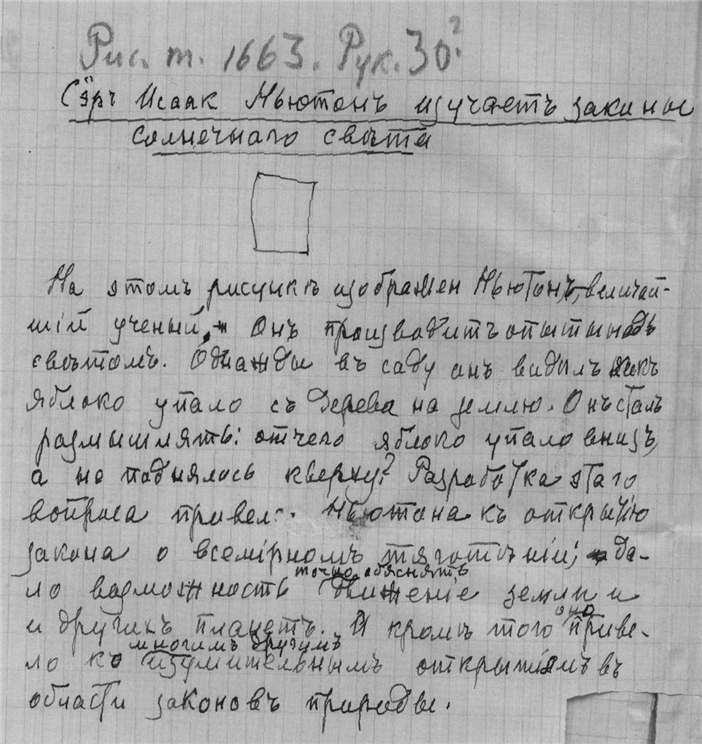 Рис. т. 1663. Рук. 30?
Сэръ Исаак Ньютонъ изучаетъ законы
солнечнаго свѣта
На этомъ рисункѣ изображен Ньютонъ, величай-
шій ученый, Онъ производитъ опыты надъ
свѣтомъ. Однажды въ саду онъ видѣлъ какъ
яблоко упало съ дерева на землю. Онъ сталъ
размышлять: отчего яблоко упало внизъ,
а не поднялось кверху? Разработка этаго
вопроса привела Ньютона къ открытію
закона о всемірномъ тяготѣніи; да-
точно объяснять
ло возможность движеніе земли и
оно
и другихъ планетъ. И кромѣ того приве-
многимъ другимъ
ло къ изумительнымъ открытіямъ въ
области законовъ природы.